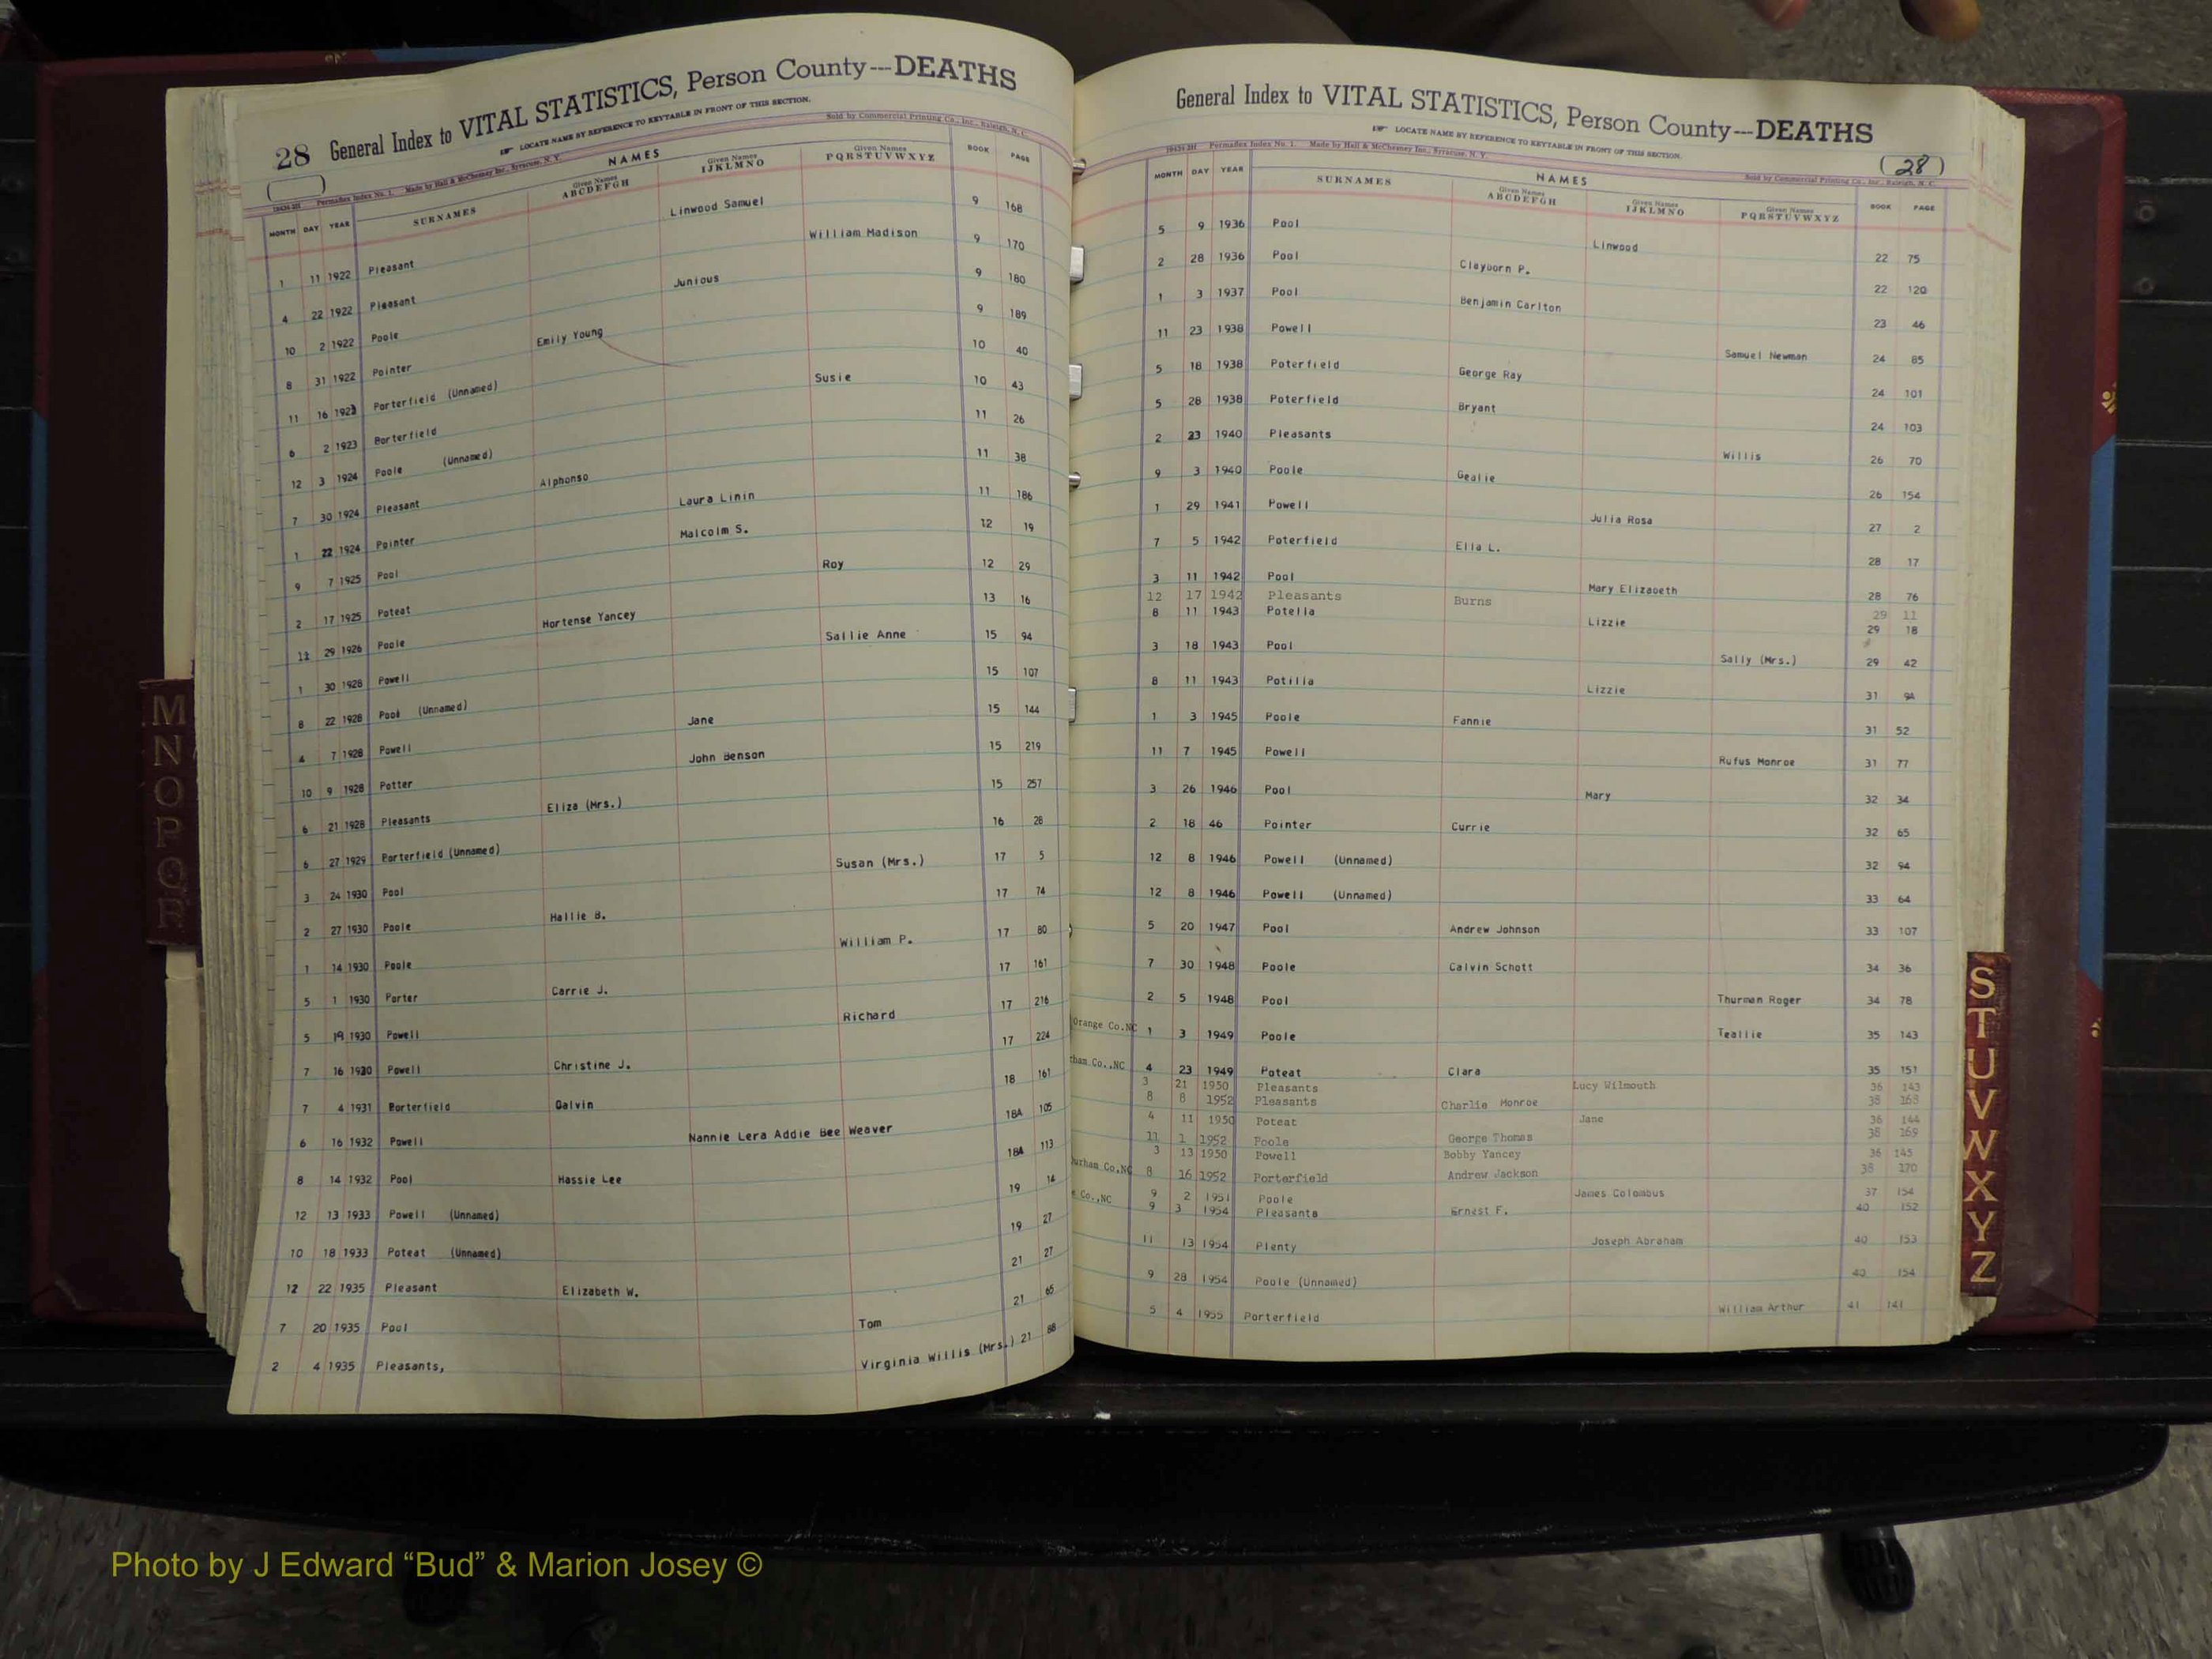 28 General Index to VITAL STATISTICS, Person County---DEATHS
LOCATE NAME BY REFERENCE TO KEYTABLE IN FRONT OF THIS SECTION.
Permadex Index No. 1. Made by Hall & McChesney Inc., Syracuse, N. Y. Sold by Commercial Printing Co., Inc., Raleigh, N. C.
MONTH DAY YEAR SURNAMES NAMES Given Names ABCDEFGH Given Names IJKLMNO Given Names PQRSTUVWXYZ BOOK PAGE
1 11 1922 Pleasant Linwood Samuel 9 168
4 22 1922 Pleasant William Madison 9 170
10 2 1922 Poole Junious 9 180
8 31 1922 Pointer Emily Young 9 189
11 16 1923 Porterfield (Unnamed) 10 40
6 2 1923 Porterfield Susie 10 43
12 3 1924 Poole (Unnamed) 11 26
7 30 1924 Pleasant Alphonso 11 38
1 22 1924 Pointer Laura Linin 11 186
9 7 1925 Pool Malcolm S. 12 19
2 17 1925 Poteat Roy 12 29
11 29 1926 Poole Hortense Yancey 13 16
1 30 1928 Powell Sallie Anne 15 94
8 22 1928 Pool (Unnamed) 15 107
4 7 1928 Powell Jane 15 144
10 9 1928 Potter John Benson 15 219
6 21 1928 Pleasants Eliza (Mrs.) 15 257
6 27 1929 Porterfield (Unnamed) 16 28
3 24 1930 Pool Susan (Mrs.) 17 5
2 27 1930 Poole Hallie B. 17 74
1 14 1930 Poole William P. 17 80
5 1 1930 Porter Carrie J. 17 161
5 19 1930 Powell Richard 17 216
7 16 1930 Powell Christine J. 17 224
7 4 1931 Porterfield Calvin 18 161
6 16 1932 Powell Nannie Lera Addie Bee Weaver 18A 105
8 14 1932 Pool Hassie Lee 18A 113
12 13 1933 Powell (Unnamed) 19 14
10 18 1933 Poteat (Unnamed) 19 27
12 22 1935 Pleasant Elizabeth W. 21 27
7 20 1935 Pool Tom 21 65
2 4 1935 Pleasants, Virginia Willis (Mrs.) 21 88
General Index to VITAL STATISTICS, Person County---DEATHS
LOCATE NAME BY REFERENCE TO KEYTABLE IN FRONT OF THIS SECTION.
(28)
Permadex Index No. 1. Made by Hall & McChesney Inc., Syracuse, N. Y. Sold by Commercial Printing Co., Inc., Raleigh, N. C.
MONTH DAY YEAR SURNAMES NAMES Given Names ABCDEFGH Given Names IJKLMNO Given Names PQRSTUVWXYZ BOOK PAGE
5 9 1936 Pool Linwood 22 75
2 28 1936 Pool Clayborn P. 22 120
1 3 1937 Pool Benjamin Carlton 23 46
11 23 1938 Powell Samuel Newman 24 85
5 18 1938 Poterfield George Ray 24 101
5 28 1938 Poterfield Bryant 24 103
2 23 1940 Pleasants Willis 26 70
9 3 1940 Poole Gealie 26 154
1 29 1941 Powell Julia Rosa 27 2
7 5 1942 Poterfield Ella L. 28 17
3 11 1942 Pool Mary Elizabeth 28 76
12 17 1942 Pleasants Burns 29 11
8 11 1943 Potella Lizzie 29 18
3 18 1943 Pool Sally (Mrs.) 29 42
8 11 1943 Potilla Lizzie 31 9A
1 3 1945 Poole Fannie 31 52
11 7 1945 Powell Rufus Monroe 31 77
3 26 1946 Pool Mary 32 34
2 18 46 Pointer Currie 32 65
12 8 1946 Powell (Unnamed) 32 94
12 8 1946 Powell (Unnamed) 33 64
5 20 1947 Pool Andrew Johnson 33 107
7 30 1948 Poole Calvin Schott 34 36
2 5 1948 Pool Thurman Roger 34 78
Orange Co.NC 1 3 1949 Poole Teallie 35 143
ham Co.,NC 4 23 1949 Poteat Clara 35 151
3 21 1950 Pleasants Lucy Wilmouth 36 143
8 8 1952 Pleasants Charlie Monroe 38 168
4 11 1950 Poteat Jane 36 144
11 1 1952 Poole George Thomas 38 169
3 13 1950 Powell Bobby Yancey 36 145
Durham Co.NC 8 16 1952 Porterfield Andrew Jackson 38 170
Co.,NC 9 2 1951 Poole James Colombus 37 154
9 3 1954 Pleasants Ernest F. 40 152
11 13 1954 Plenty Joseph Abraham 40 153
9 28 1954 Poole (Unnamed) 40 154
5 4 1955 Porterfield William Arthur 41 141
M
N
O
P
Q
R
S
T
U
V
W
X
Y
Z
Photo by J Edward “Bud” & Marion Josey ©